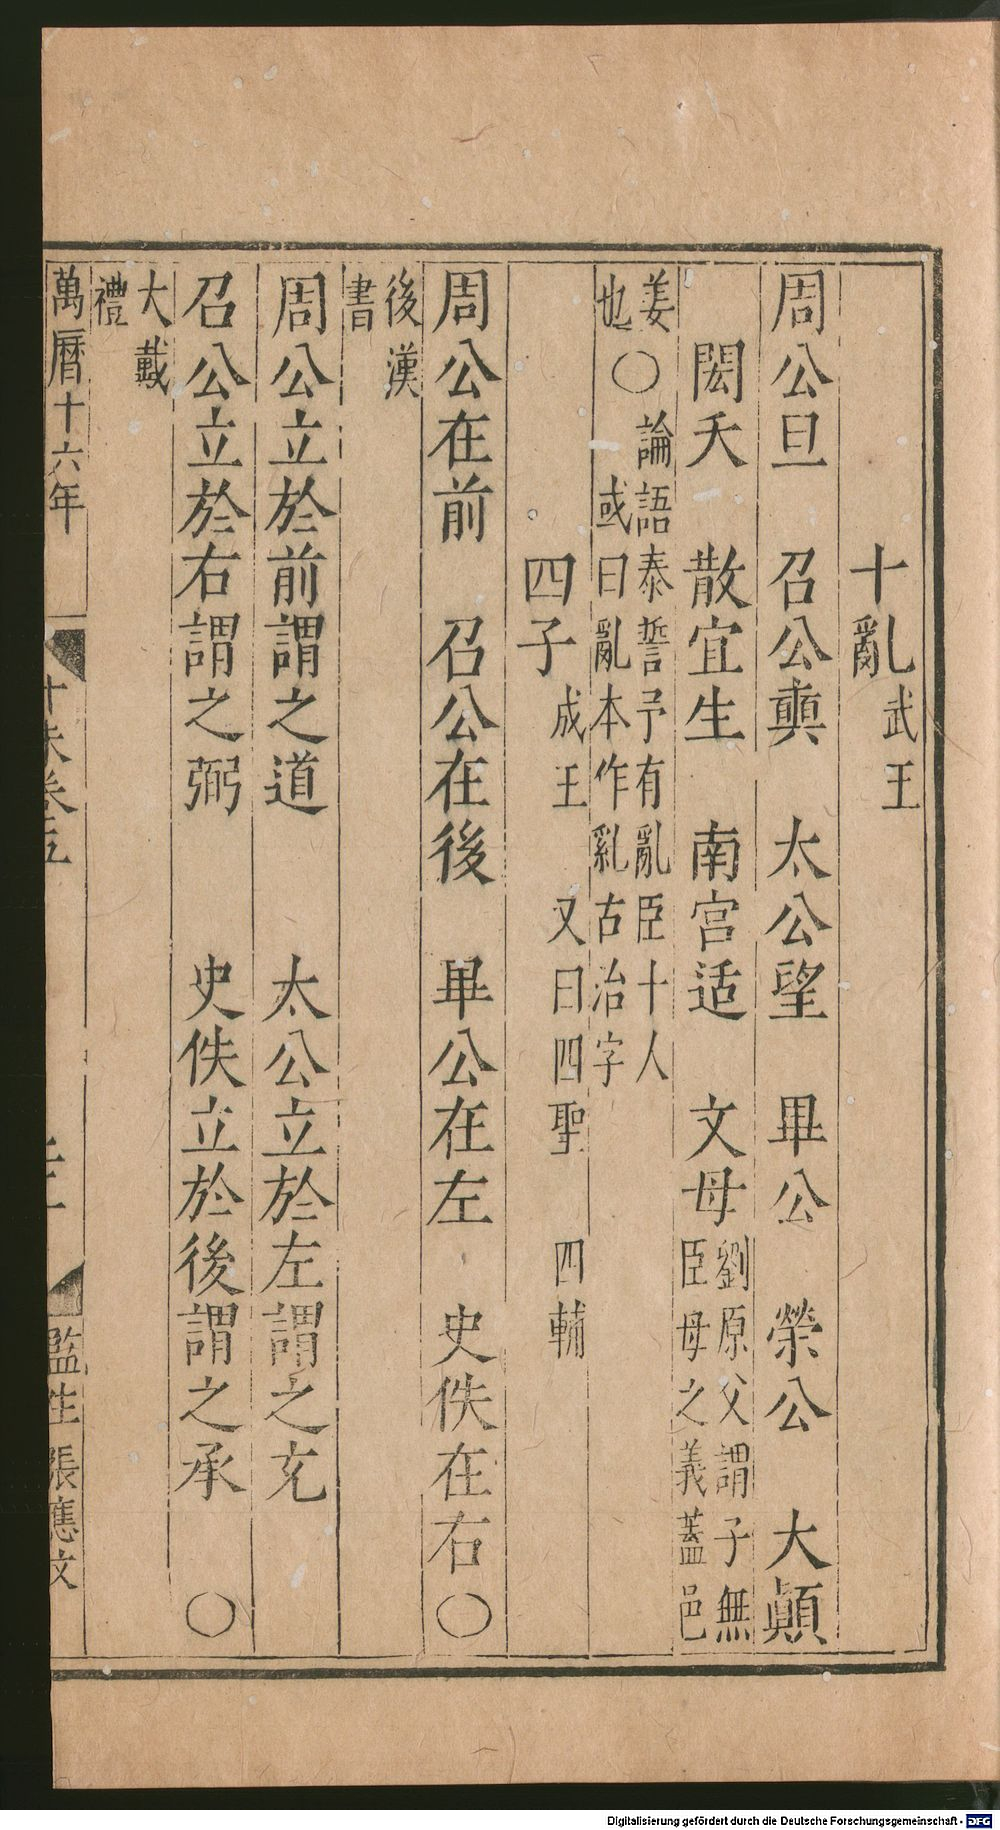 十亂武王
周公旦　召公奭　太公望　畢公　榮公　大顛
閎夭　散宜生　南宫适　文母劉原父謂子無
臣母之義蓋邑
姜〇論語泰誓予有亂臣十人
也　或曰亂本作乿古治字
四子成王　又曰四聖　四輔
周公在前　召公在後　畢公在左　史佚在右〇
後漢
書
周公立於前謂之道　太公立於左謂之充
召公立於右謂之弼　史佚立於後謂之承　〇
大戴
禮
萬曆十六年
監生張應文
Digitalisierung gefördert durch die Deutsche Forschungsgemeinschaft - DFG